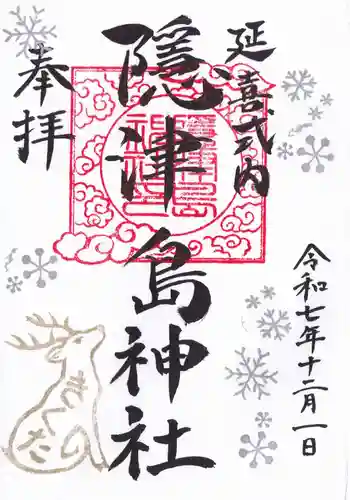 延喜式内
隠津島神社
奉拝
令和七年十二月一日
きくの